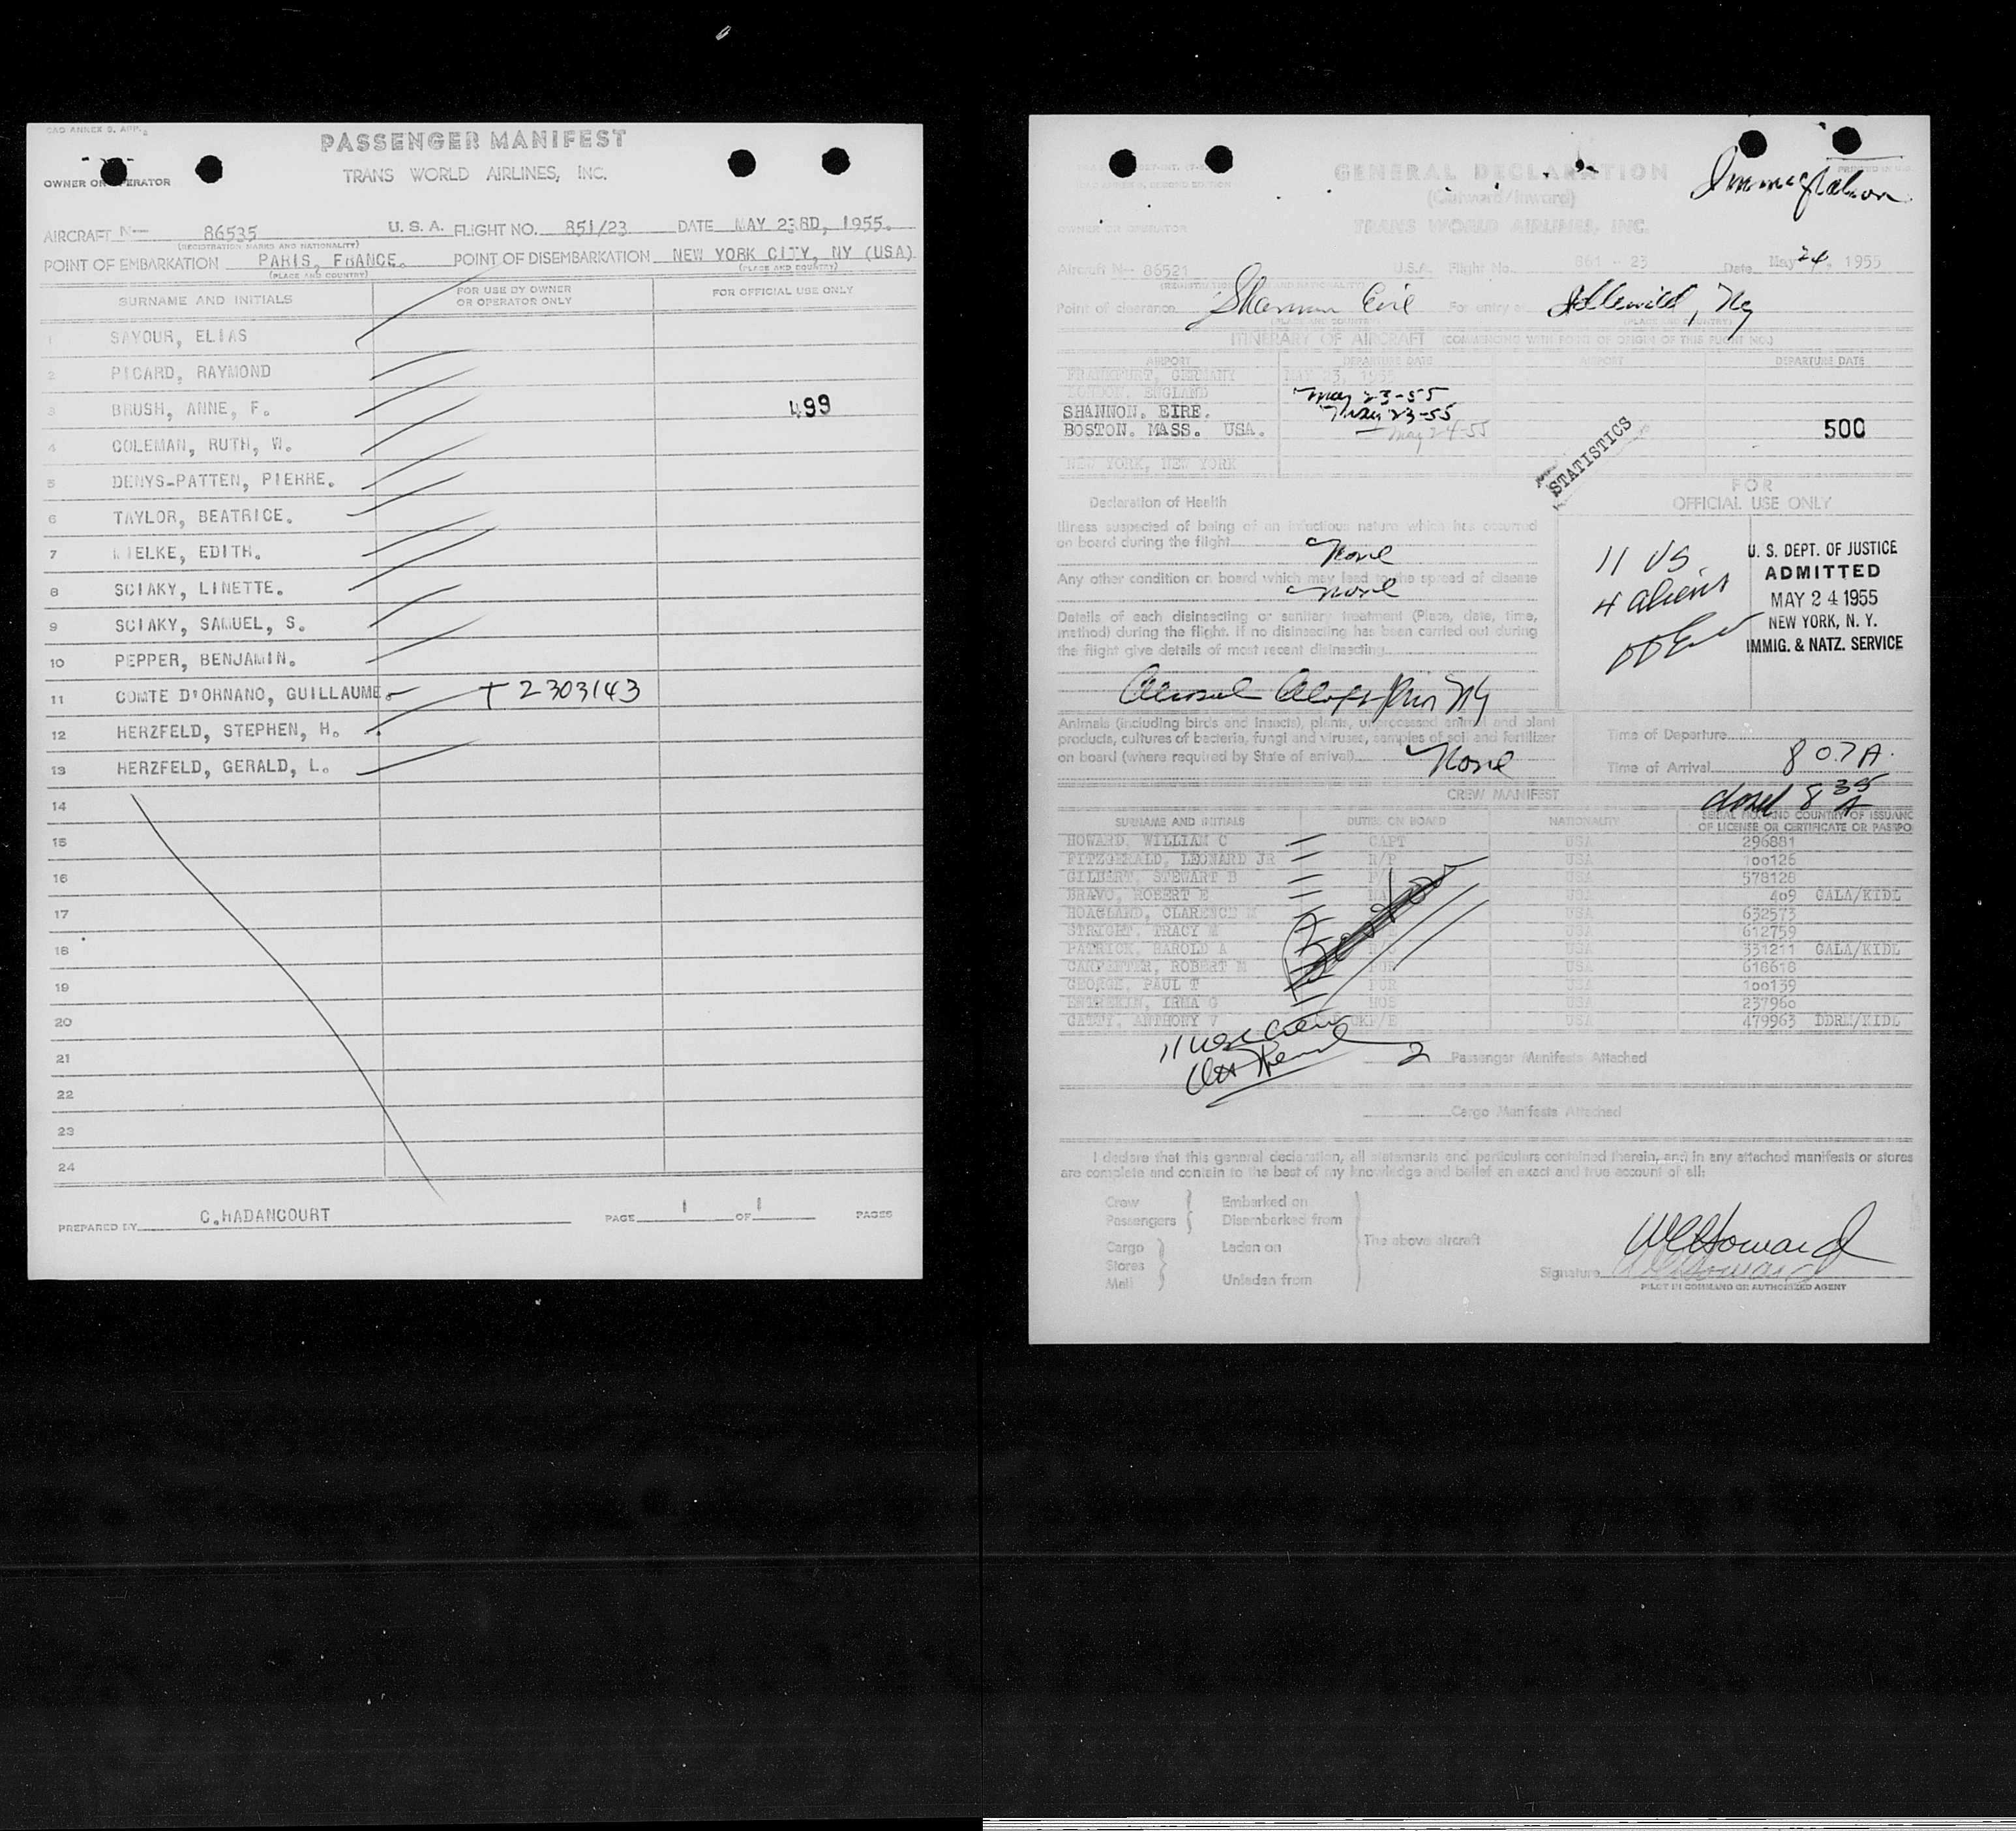 CAO ANNEX 9, APP. 2
PASSENGER MANIFEST
OWNER OR OPERATOR
TRANS WORLD AIRLINES, INC.
AIRCRAFT N— 86535 U. S. A. FLIGHT NO. 851/23 DATE MAY 23RD, 1955.
(REGISTRATION MARKS AND NATIONALITY)
POINT OF EMBARKATION PARIS, FRANCE. POINT OF DISEMBARKATION NEW YORK CITY, NY (USA)
(PLACE AND COUNTRY) (PLACE AND COUNTRY)
SURNAME AND INITIALS FOR USE BY OWNER OR OPERATOR ONLY FOR OFFICIAL USE ONLY
1 SAYOUR, ELIAS
2 PICARD, RAYMOND
3 BRUSH, ANNE, F. 499
4 COLEMAN, RUTH, W.
5 DENYS-PATTEN, PIERRE.
6 TAYLOR, BEATRICE.
7 IELKE, EDITH.
8 SCIAKY, LINETTE.
9 SCIAKY, SAMUEL, S.
10 PEPPER, BENJAMIN.
11 COMTE D'ORNANO, GUILLAUME. 2303143
12 HERZFELD, STEPHEN, H.
13 HERZFELD, GERALD, L.
14
15
16
17
18
19
20
21
22
23
24
PREPARED BY C.HADANCOURT PAGE 1 OF 1 PAGES
GENERAL DECLARATION
Immigration
(Outward/Inward)
OWNER OR OPERATOR
TRANS WORLD AIRLINES, INC.
Aircraft N— 86521 U.S.A. Flight No. 861 - 23 Date May 24, 1955
Point of clearance Shannon Eire For entry at Idlewild, Ny
(PLACE AND COUNTRY) (PLACE AND COUNTRY)
ITINERARY OF AIRCRAFT (COMMENCING WITH POINT OF ORIGIN OF THIS FLIGHT NO.)
AIRPORT DEPARTURE DATE AIRPORT DEPARTURE DATE
FRANKFURT, GERMANY MAY 23, 1955
LONDON, ENGLAND May 23-55
SHANNON. EIRE. May 23-55
BOSTON. MASS. USA. May 24-55 500
NEW YORK, NEW YORK
STATISTICS
Declaration of Health
FOR OFFICIAL USE ONLY
Illness suspected of being of an infectious nature which has occurred
on board during the flight None
Any other condition on board which may lead to the spread of disease
None
Details of each disinsecting or sanitary treatment (Place, date, time,
method) during the flight. If no disinsecting has been carried out during
the flight give details of most recent disinsecting
11 US
4 aliens
U. S. DEPT. OF JUSTICE
ADMITTED
MAY 24 1955
NEW YORK, N. Y.
IMMIG. & NATZ. SERVICE
Animals (including birds and insects), plants, unprocessed animal and plant
products, cultures of bacteria, fungi and viruses, samples of soil and fertilizer
on board (where required by State of arrival) None
Time of Departure
Time of Arrival 8 07 A.
closed 8 35 A
CREW MANIFEST
SURNAME AND INITIALS DUTIES ON BOARD NATIONALITY SERIAL NO. AND COUNTRY OF ISSUANC OF LICENSE OR CERTIFICATE OR PASSPO
HOWARD, WILLIAM C CAPT USA 296881
FITZGERALD, LEONARD JR R/P USA 100126
GILBERT, STEWART B USA 578128
BRAVO, ROBERT E NAV USA 409 GALA/KIDL
HOAGLAND, CLARENCE M USA 632573
STRIGHT, TRACY M USA 612759
PATRICK, HAROLD A USA 331211 GALA/KIDL
CARPENTER, ROBERT M PUR USA 618618
GEORGE, PAUL T PUR USA 100139
IRMA G HOS USA 237960
GATTY, ANTHONY V USA 479963 DDRM/KIDL
Boston
2 Passenger Manifests Attached
Cargo Manifests Attached
I declare that this general declaration, all statements and particulars contained therein, and in any attached manifests or stores
are complete and contain to the best of my knowledge and belief an exact and true account of all:
Crew Embarked on
Passengers Disembarked from
Cargo Laden on The above aircraft
Stores
Mail Unladen from
Signature WCHoward
PILOT IN COMMAND OR AUTHORIZED AGENT